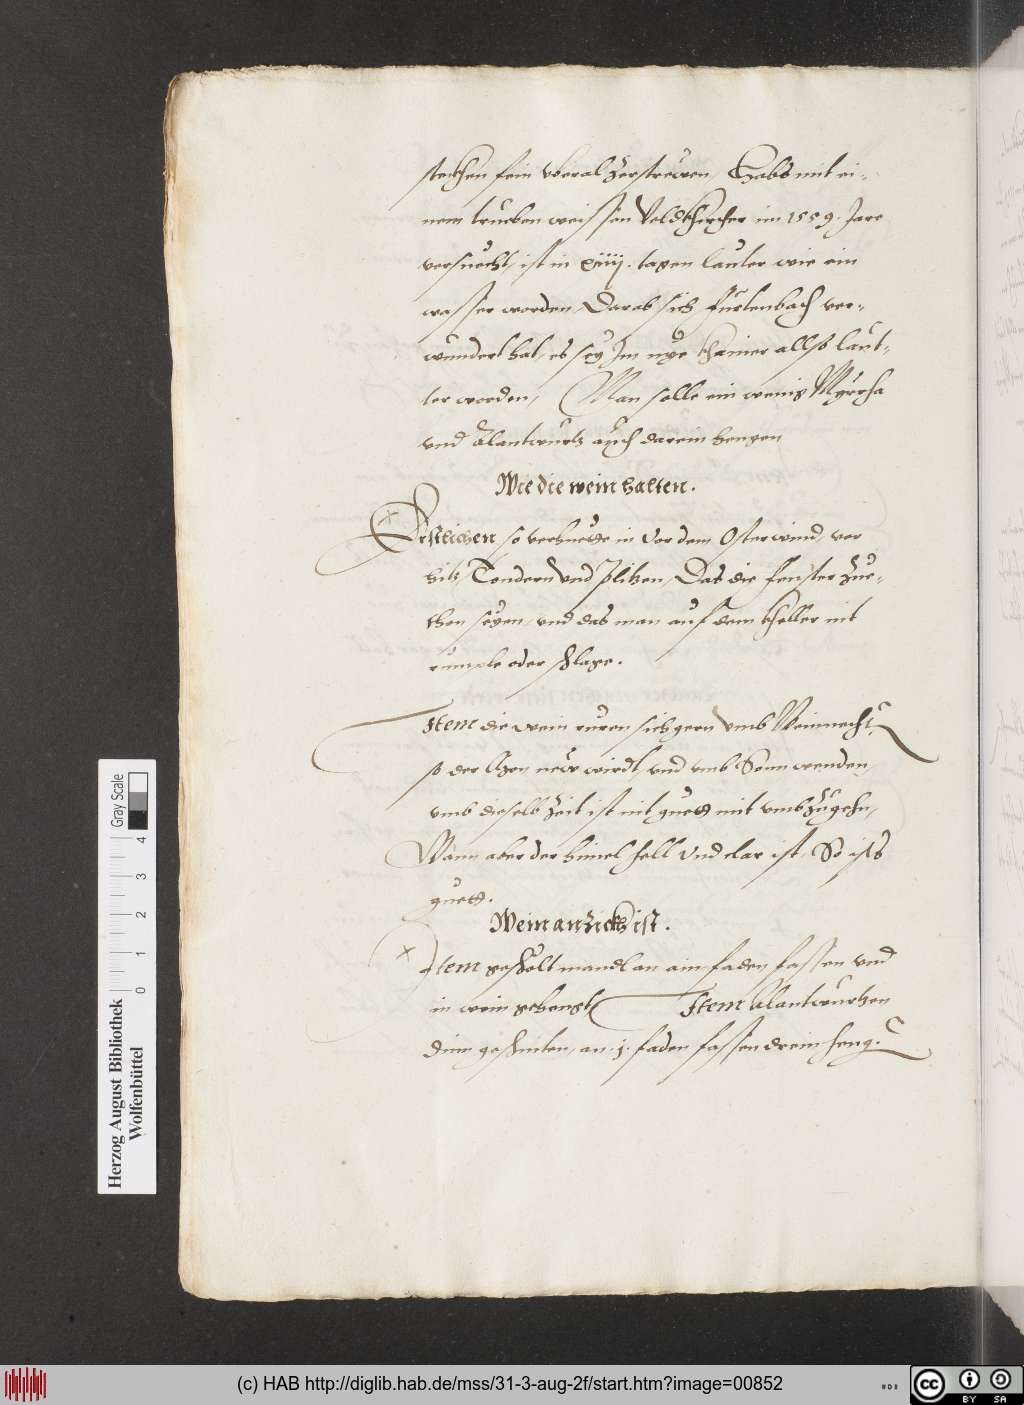 stechen fein vberal zerströwen, Habs mit ei-
nem trueben weissen Veldkhircher im 1559. Jare
versuecht, ist in xiiij. tagen lauter wie ein
wasser worden, Darab sich Furtenbach ver-
wundert hat, es sey Im nye khainer allso laut-
ter worden, Man solle ein wenig Myrrha
vnd Alantwurtz auch darein hengen
Wie die wein halten.
Erstlichen so verhuette in vor dem Osterwind, vor
hitz, Tondern vnd Plitzen, Das die fenster zue-
thon seyen, vnd das man auf dem kheller nit
rumple oder schlage.
Item die wein ruren sich gern vmb Weinnecht,
so der Mon new wirdt, vnd vmb Sonnwenden,
vmb dieselb zeit ist nit guett mit vmbzugehn,
Wann aber der himel hell vnd clar ist, So ists
guett.
Wein anzickh ist.
Item geschölt mandl an ain faden fassen vnd
in wein gehengt, Item Alantwurtzen
dinn geschniten, an .j. faden fassen drein heng.
Herzog August Bibliothek
Wolfenbüttel
Gray Scale
0 1 2 3 4
(c) HAB http://diglib.hab.de/mss/31-3-aug-2f/start.htm?image=00852
cc BY SA